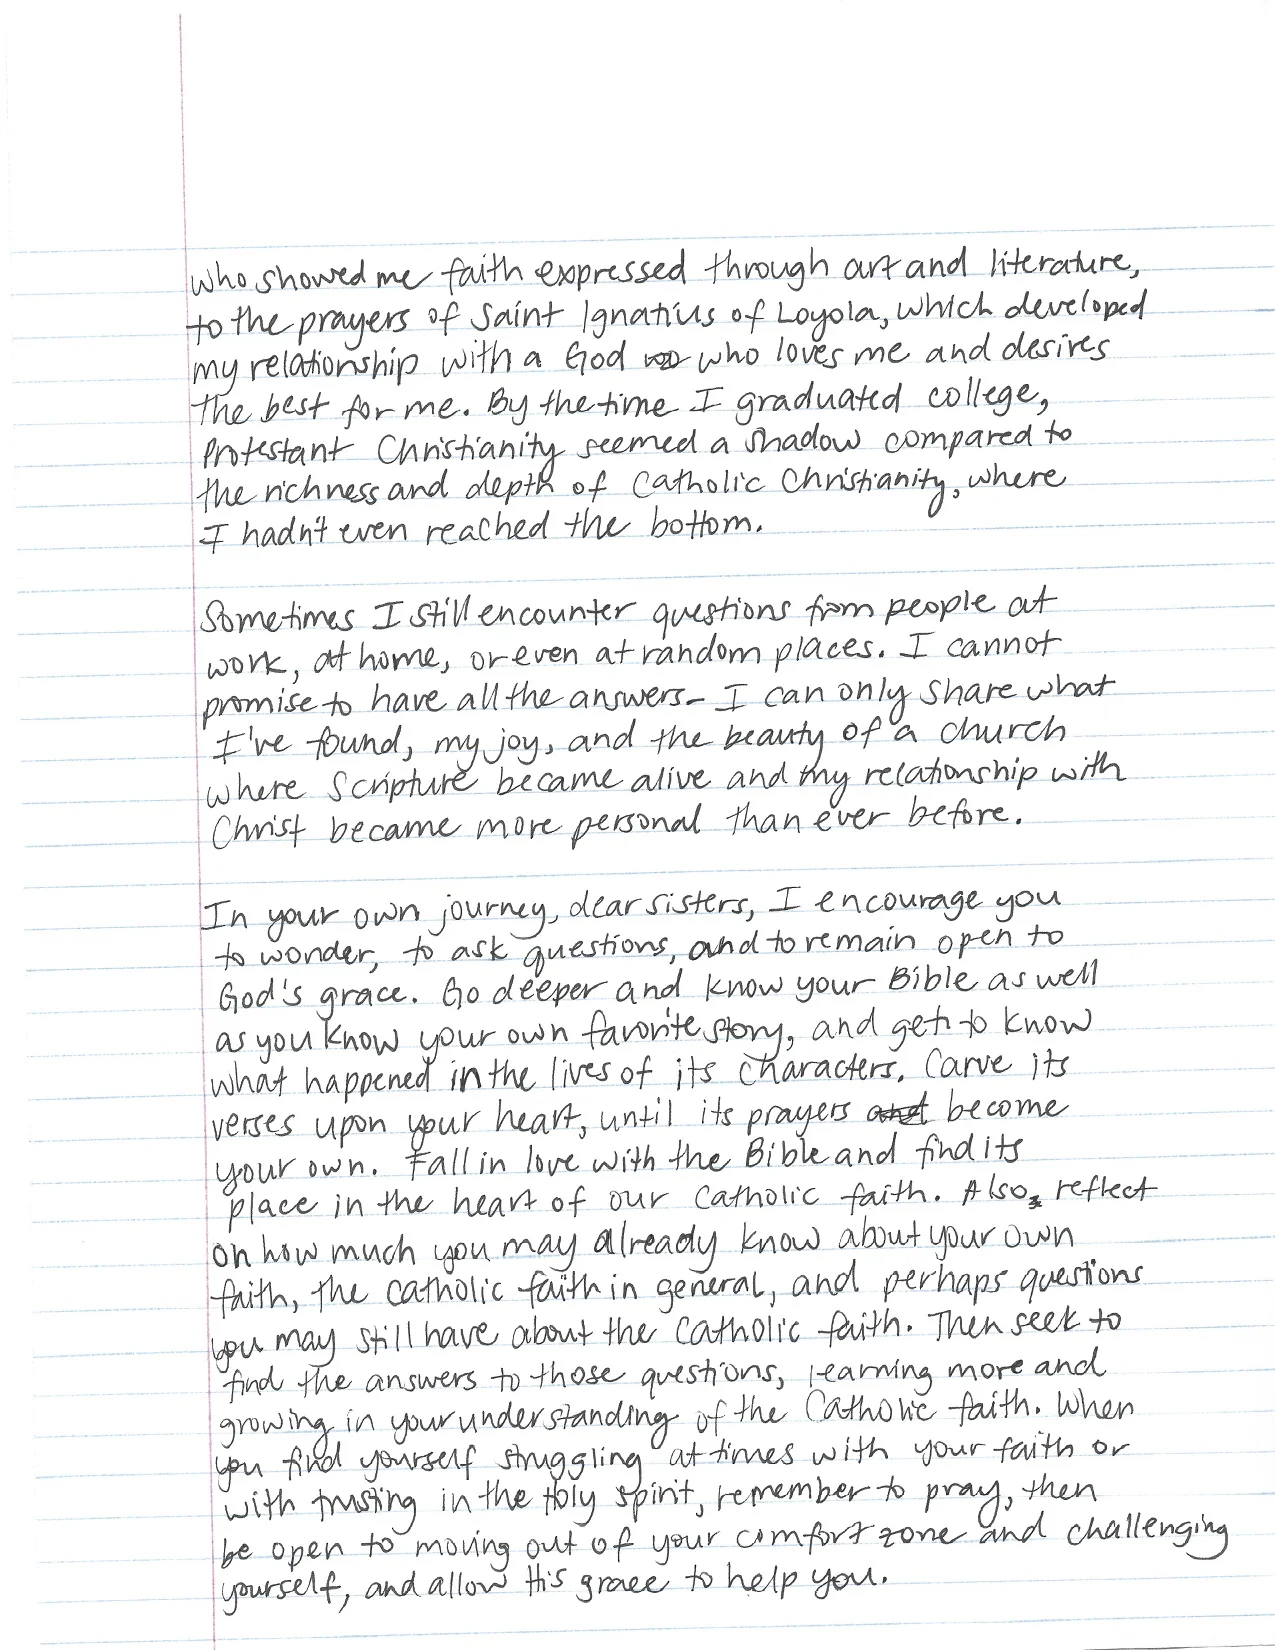 who showed me faith expressed through art and literature,
to the prayers of Saint Ignatius of Loyola, which developed
my relationship with a God who loves me and desires
the best for me. By the time I graduated college,
Protestant Christianity seemed a shadow compared to
the richness and depth of Catholic Christianity, where
I hadn't even reached the bottom.

Sometimes I still encounter questions from people at
work, at home, or even at random places. I cannot
promise to have all the answers- I can only share what
I've found, my joy, and the beauty of a church
where Scripture became alive and my relationship with
Christ became more personal than ever before.

In your own journey, dear sisters, I encourage you
to wonder, to ask questions, and to remain open to
God's grace. Go deeper and know your Bible as well
as you know your own favorite story, and get to know
what happened in the lives of its characters. Carve its
verses upon your heart, until its prayers become
your own. Fall in love with the Bible and find its
place in the heart of our Catholic faith. Also, reflect
on how much you may already know about your own
faith, the Catholic faith in general, and perhaps questions
you may still have about the Catholic faith. Then seek to
find the answers to those questions, learning more and
growing in your understanding of the Catholic faith. When
you find yourself struggling at times with your faith or
with trusting in the Holy Spirit, remember to pray, then
be open to moving out of your comfort zone and challenging
yourself, and allow His grace to help you.